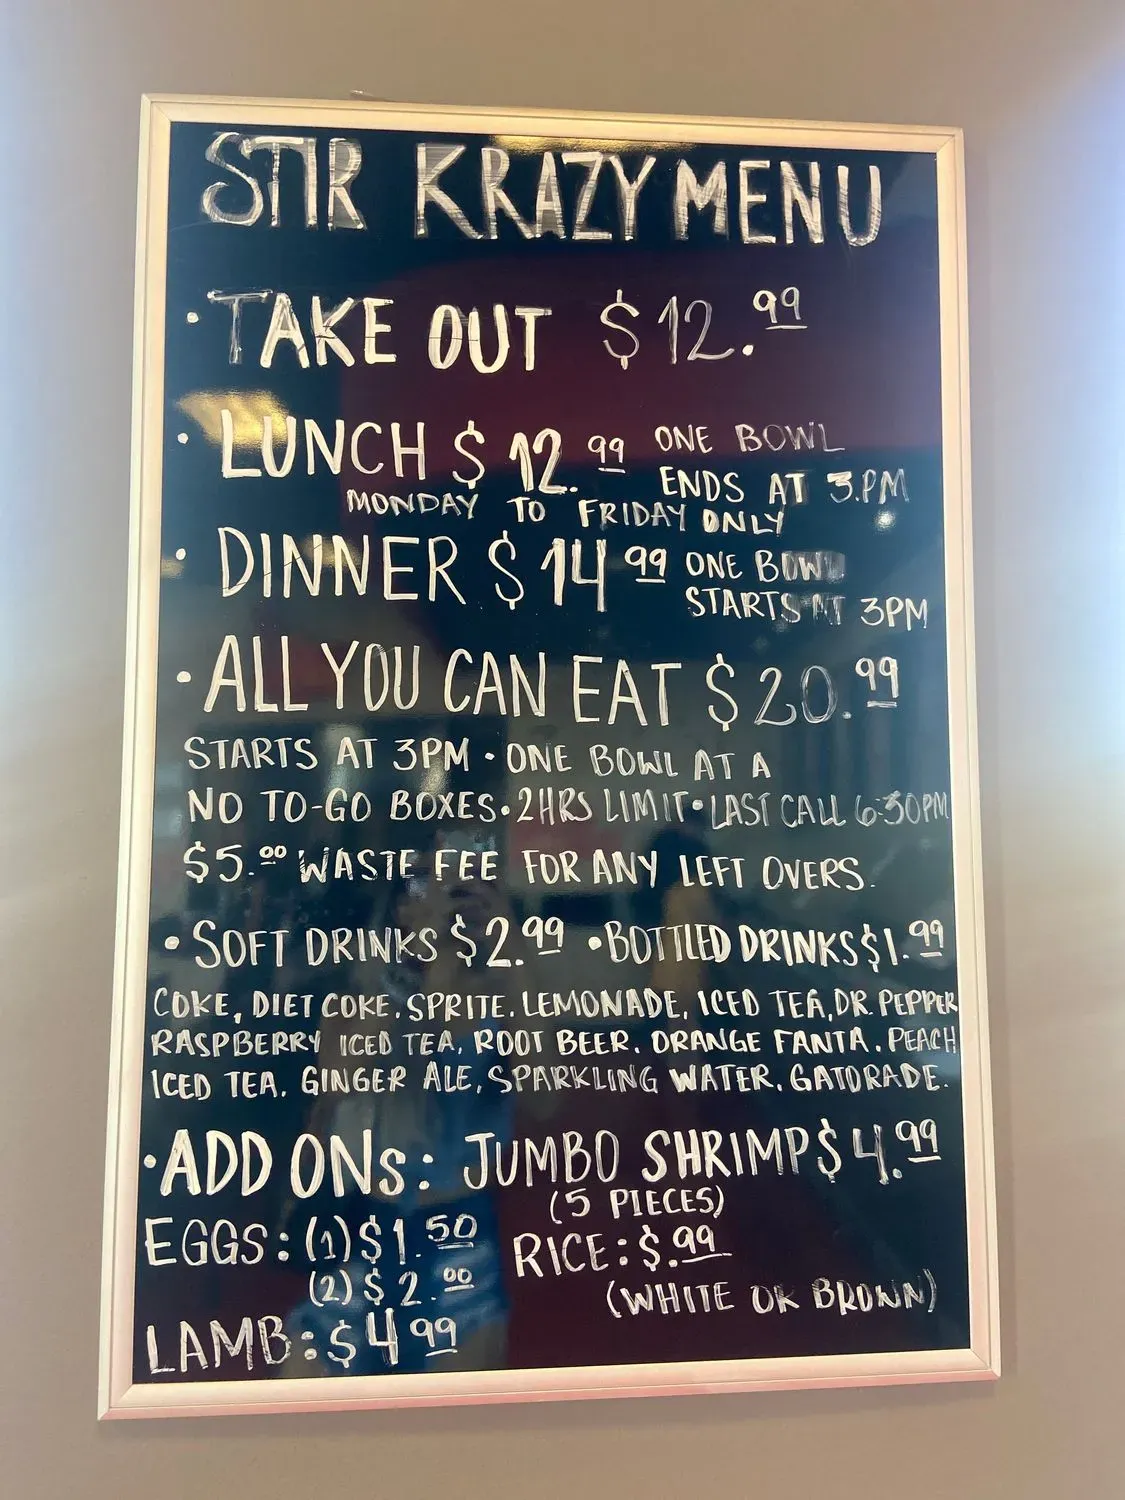 STIR KRAZY MENU
• TAKE OUT $12.99
• LUNCH $12.99 ONE BOWL
ENDS AT 3.PM
MONDAY TO FRIDAY ONLY
• DINNER $14.99 ONE BOWL
STARTS AT 3PM
• ALL YOU CAN EAT $20.99
STARTS AT 3PM • ONE BOWL AT A
NO TO-GO BOXES • 2HRS LIMIT • LAST CALL 6:30PM
$5.00 WASTE FEE FOR ANY LEFT OVERS.
• SOFT DRINKS $2.99 • BOTTLED DRINKS $1.99
COKE, DIET COKE. SPRITE. LEMONADE, ICED TEA, DR. PEPPER
RASPBERRY ICED TEA, ROOT BEER. ORANGE FANTA. PEACH
ICED TEA. GINGER ALE, SPARKLING WATER. GATORADE.
• ADD ONs: JUMBO SHRIMP $4.99
(5 PIECES)
EGGS: (1) $1.50 RICE: $.99
(2) $2.00 (WHITE OR BROWN)
LAMB: $4.99